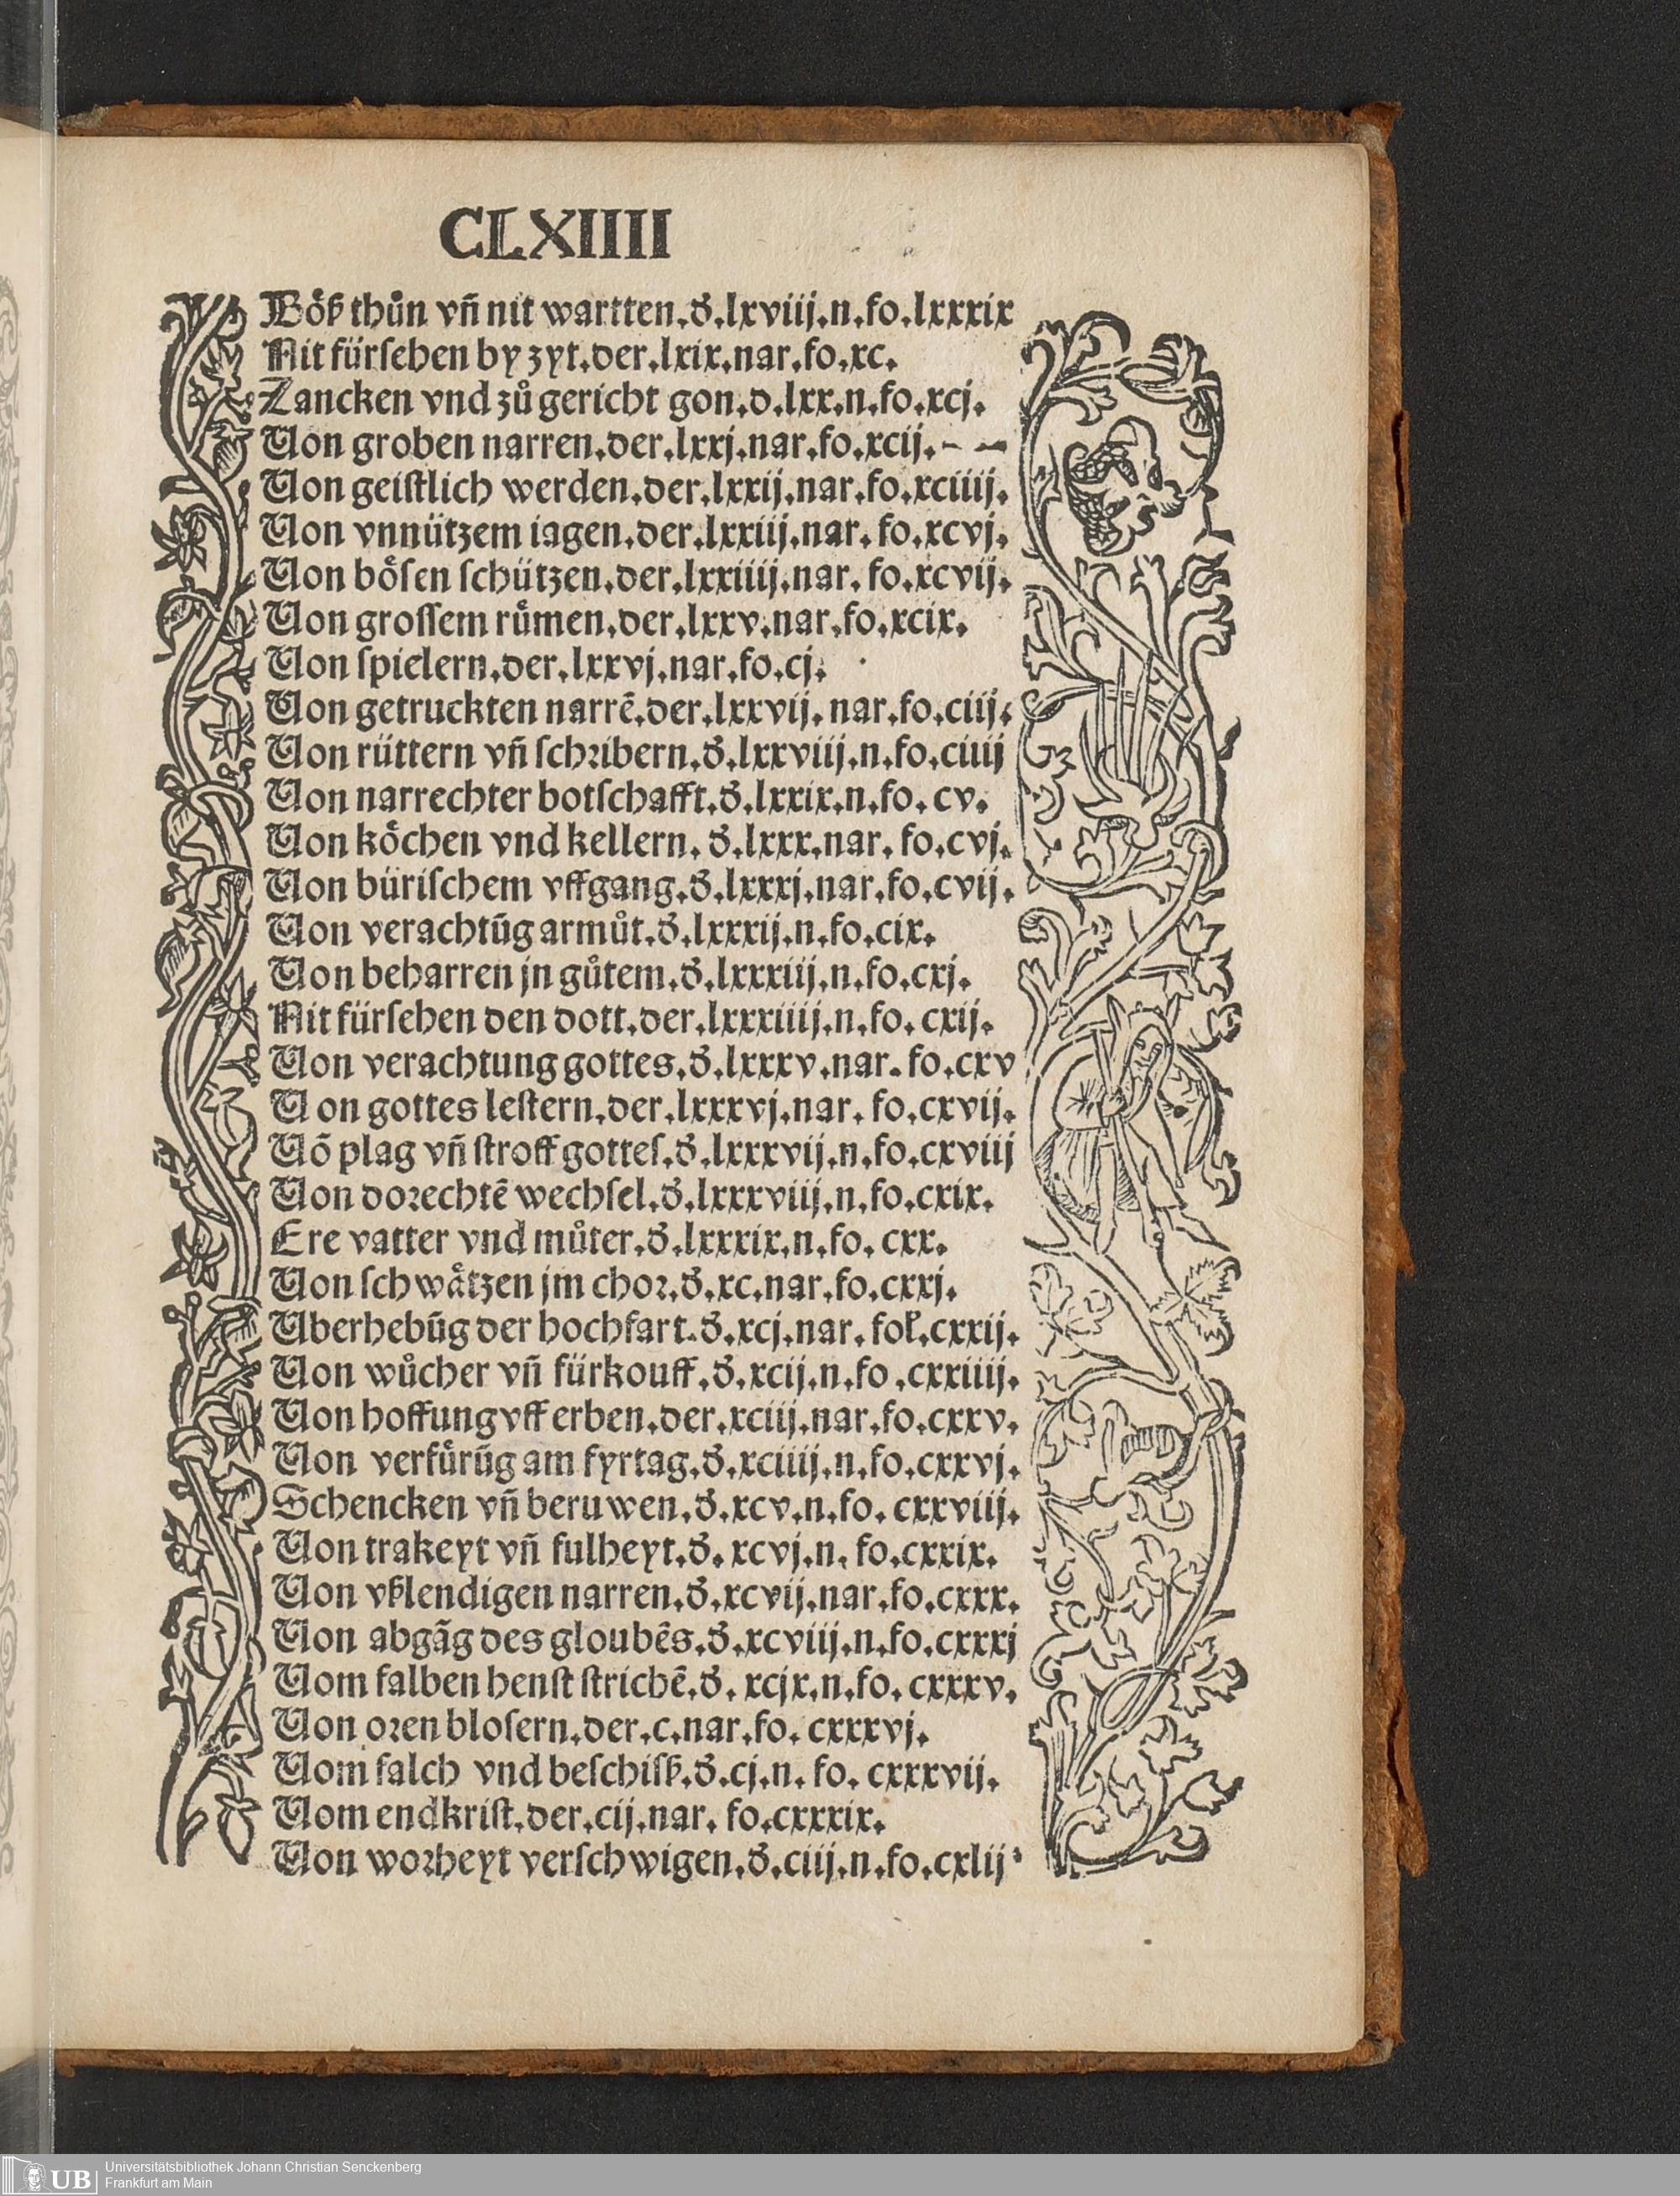 CLXIIII
Böß thůn vñ nit wartten.d͛.lxviij.n.fo.lxxxix
Nit fürſehen by zyt.der.lxix.nar.fo.xc.
Zancken vnd zů gericht gon.d.lxx.n.fo.xcj.
Von groben narren.der.lxxj.nar.fo.xcij.
Von geiſtlich werden.der.lxxij.nar.fo.xciiij.
Von vnnützem iagen.der.lxxiij.nar. fo.xcvj.
Von boͤſen ſchützen.der.lxxiiij.nar. fo.xcvij.
Von groſſem ruͤmen.der.lxxv.nar.fo.xcix.
Von ſpielern.der.lxxvj.nar.fo.cj.
Von getruckten narrē.der.lxxvij. nar.fo.ciij.
Von rüttern vñ ſchꝛibern.d͛.lxxviij.n.fo.ciiij
Von narrechter botſchafft.d͛.lxxix.n.fo. cv.
Von koͤchen vnd kellern. d͛.lxxx.nar. fo.cvj.
Von büriſchem vffgang.d͛.lxxxj.nar.fo.cvij.
Von verachtūg armůt.d͛.lxxxij.n.fo.cix.
Von beharren jn gůtem.d͛.lxxxiij.n.fo.cxj.
Nit fürſehen den dott.der.lxxxiiij.n.fo. cxij.
Von verachtung gottes.d͛.lxxxv.nar. fo.cxv
Von gottes leſtern.der.lxxxvj.nar. fo.cxvij.
Võ plag vñ ſtroff gotteſ.d͛.lxxxvij.n.fo.cxviij
Von doꝛechtē wechſel.d͛.lxxxviij.n.fo.cxix.
Ere vatter vnd můter.d͛.lxxxix.n.fo. cxx.
Von ſchwaͤtzen jm choꝛ.d͛.xc.nar.fo.cxxj.
Uberhebūg der hochfart.d͛.xcj.nar. fol̓.cxxij.
Von wůcher vñ fürkouff.d͛.xcij.n.fo .cxxiiij.
Von hoffung vff erben.der.xciij.nar.fo.cxxv.
Von verfuͤrūg am fyrtag.d͛.xciiij.n.fo.cxxvj.
Schencken vñ beruwen.d͛.xcv.n.fo. cxxviij.
Von trakeyt vñ fulheyt.d͛. xcvj.n. fo.cxxix.
Von vßlendigen narren.d͛.xcvij.nar.fo.cxxx.
Von abgāg des gloubēs.d͛.xcviij.n.fo.cxxxj
Vom falben henſt ſtrichē.d͛. xcjx.n.fo. cxxxv.
Von oꝛen bloſern.der.c.nar.fo. cxxxvj.
Vom falch vnd beſchiſß.d͛.cj.n. fo. cxxxvij.
Vom endkriſt.der.cij.nar. fo.cxxxix.
Von woꝛheyt verſchwigen.d͛.ciij.n.fo.cxlij
UB
Universitätsbibliothek Johann Christian Senckenberg
Frankfurt am Main